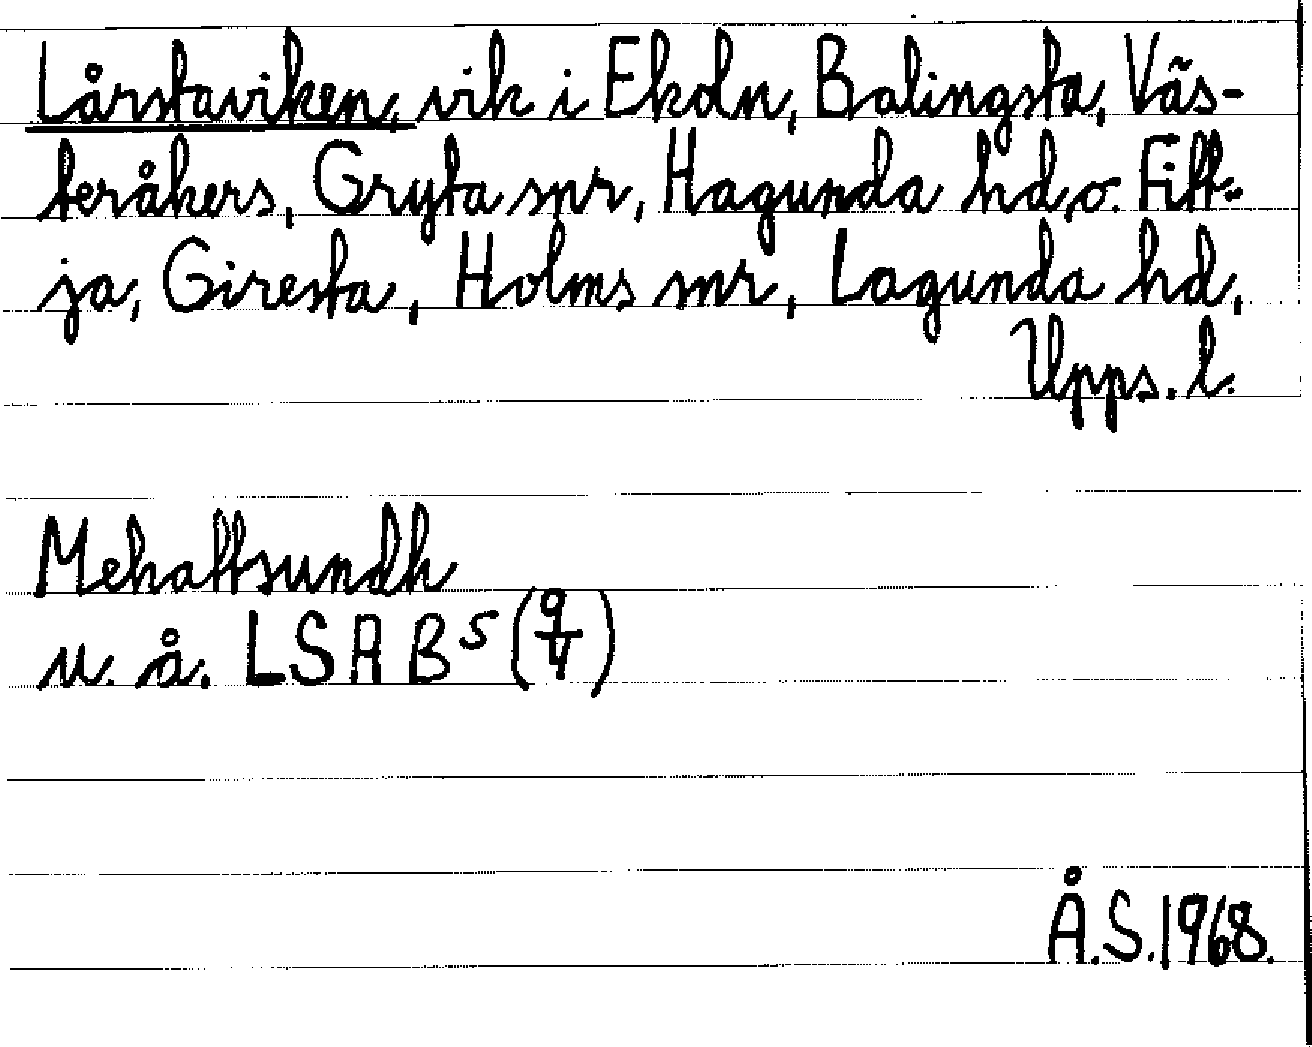 Lårstaviken, vik i Ekoln, Balingsta, Väs-
teråkers, Gryta snr, Hagunda hd, o. Fitt-
ja, Giresta, Holms snr, Lagunda hd,
Upps. l.
Mehattsundh
u. å. LSA B 5 (9/V)
Å.S. 1968.